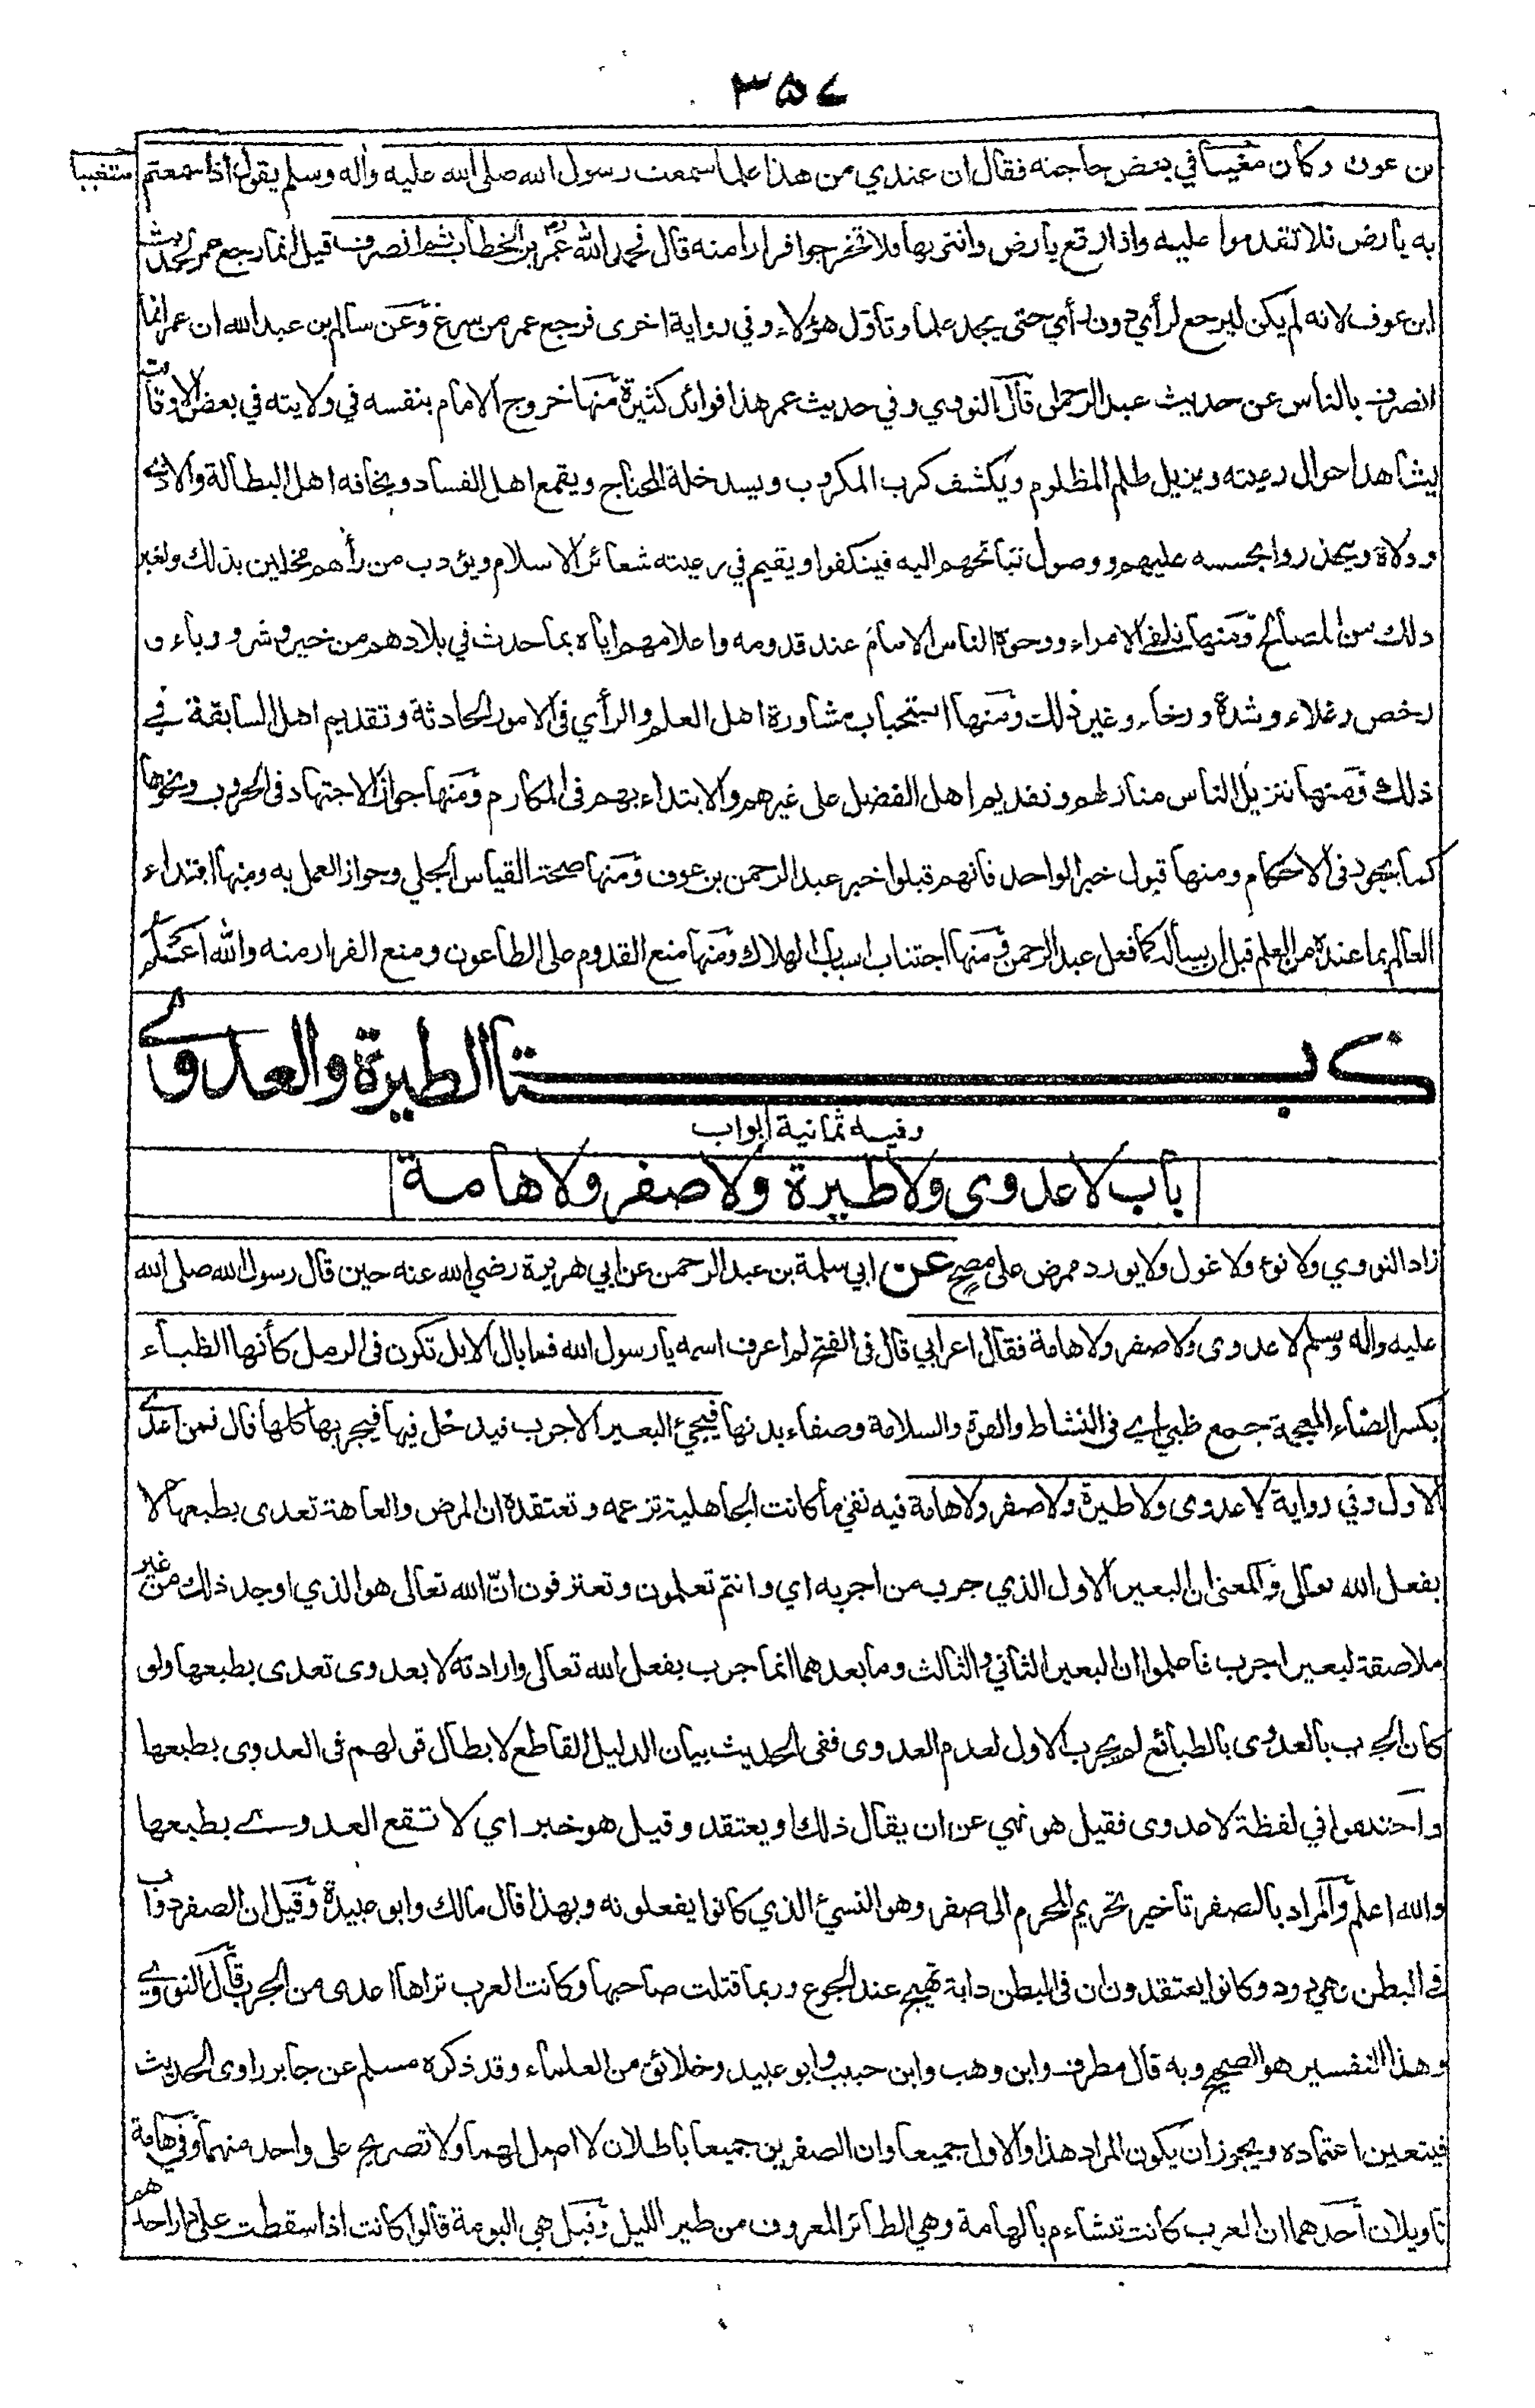 ٣٥٧
بن عوف وكان مغيبا في بعض حاجته فقال ان عندي من هذا علما سمعت رسول الله صلى الله عليه واله وسلم يقول اذا سمعتم
متغيبا
به بارض فلا تقدموا عليه واذا وقع بارض وانتم بها فلا تخرجوا فرارا منه قال فحمد الله عمر بن الخطاب ثم انصرف قيل انما رجع عمر لحديث
ابن عوف لانه لم يكن ليرجع لرأي دون رأي حتى يجد علما وتأول هؤلاء وفي رواية اخرى فرجع عمر من سرغ وعن سالم بن عبد الله ان عمر انما
انصرف بالناس عن حديث عبد الرحمن قال النووي وفي حديث عمر هذا فوائد كثيرة منها خروج الامام بنفسه في ولايته في بعض الاوقات
يشاهد احوال رعيته ويزيل ظلم المظلوم ويكشف كرب المكروب ويسد خلة المحتاج ويقمع اهل الفساد ويخافه اهل البطالة والاذى
وولاة ويحذروا تجسسه عليهم ووصول قبائحهم اليه فينكفوا ويقيم في رعيته شعائر الاسلام ويؤدب من رأهم مخلين بذلك ولغير
ذلك من المصالح ومنها تلقي الامراء ووجوه الناس الامام عند قدومه واعلامهم اياه بما حدث في بلادهم من خير وشر ووباء و
رخص وغلاء وشدة ورخاء وغير ذلك ومنها استحباب مشاورة اهل العلم والرأي في الامور الحادثة وتقديم اهل السابقة في
ذلك ومنها تنزيل الناس منازلهم وتقديم اهل الفضل على غيرهم والابتداء بهم في المكارم ومنها جواز الاجتهاد في الحروب ونحوها
كما يجوز في الاحكام ومنها قبول خبر الواحد فانهم قبلوا خبر عبد الرحمن بن عوف ومنها صحة القياس الجلي وجواز العمل به ومنها ابتداء
العالم بما عنده من العلم قبل ان يسأله كما فعل عبد الرحمن ومنها اجتناب اسباب الهلاك ومنها منع القدوم على الطاعون ومنع الفرار منه والله اعلم
كتاب الطيرة والعدوى
وفيه ثمانية ابواب
باب لا عدوى ولا طيرة ولا صفر ولا هامة
زاد النووي ولا نوء ولا غول ولا يورد ممرض على مصح عن ابي سلمة بن عبد الرحمن عن ابي هريرة رضي الله عنه حين قال رسول الله صلى الله
عليه واله وسلم لا عدوى ولا صفر ولا هامة فقال اعرابي قال في الفتح لم اعرف اسمه يا رسول الله فما بال الابل تكون في الرمل كأنها الظباء
بكسر الضاء المعجمة جمع ظبي اي في النشاط والقوة والسلامة وصفاء بدنها فيجيء البعير الاجرب فيدخل فيها فيجربها كلها قال فمن اعدى
الاول وفي رواية لا عدوى ولا طيرة ولا صفر ولا هامة فيه نفي ما كانت الجاهلية تزعمه وتعتقده ان المرض والعاهة تعدى بطبعها لا
بفعل الله تعالى والمعنى ان البعير الاول الذي جرب من اجربه اي وانتم تعلمون وتعترفون ان الله تعالى هو الذي اوجد ذلك من غير
ملاصقة لبعير اجرب فاعلموا ان البعير الثاني والثالث وما بعدهما انما جرب بفعل الله تعالى وارادته لا بعدوى تعدى بطبعها ولو
كان الجرب بالعدوى بالطبائع لم يجرب الاول لعدم العدوى ففي الحديث بيان الدليل القاطع لابطال قولهم في العدوى بطبعها
واختلفوا في لفظة لا عدوى فقيل هو نهي عن ان يقال ذلك او يعتقد وقيل هو خبر اي لا تقع العدوى بطبعها
والله اعلم والمراد بالصفر تأخير تحريم المحرم الى صفر وهو النسيء الذي كانوا يفعلونه وبهذا قال مالك وابو عبيدة وقيل ان الصفر دواب
في البطن وهي دود وكانوا يعتقدون ان في البطن دابة تهيج عند الجوع وربما قتلت صاحبها وكانت العرب تراها اعدى من الجرب قال النووي
وهذا التفسير هو الصحيح وبه قال مطرف وابن وهب وابن حبيب وابو عبيد وخلائق من العلماء وقد ذكره مسلم عن جابر راوى الحديث
فيتعين اعتماده ويجوز ان يكون المراد هذا والاول جميعا وان الصفرين جميعا باطلان لا اصل لهما ولا تصريح على واحد منهما وفي هامة
تاويلان احدهما ان العرب كانت تتشاءم بالهامة وهي الطائر المعروف من طير الليل وقيل هي البومة قالوا كانت اذا سقطت على دار احدهم